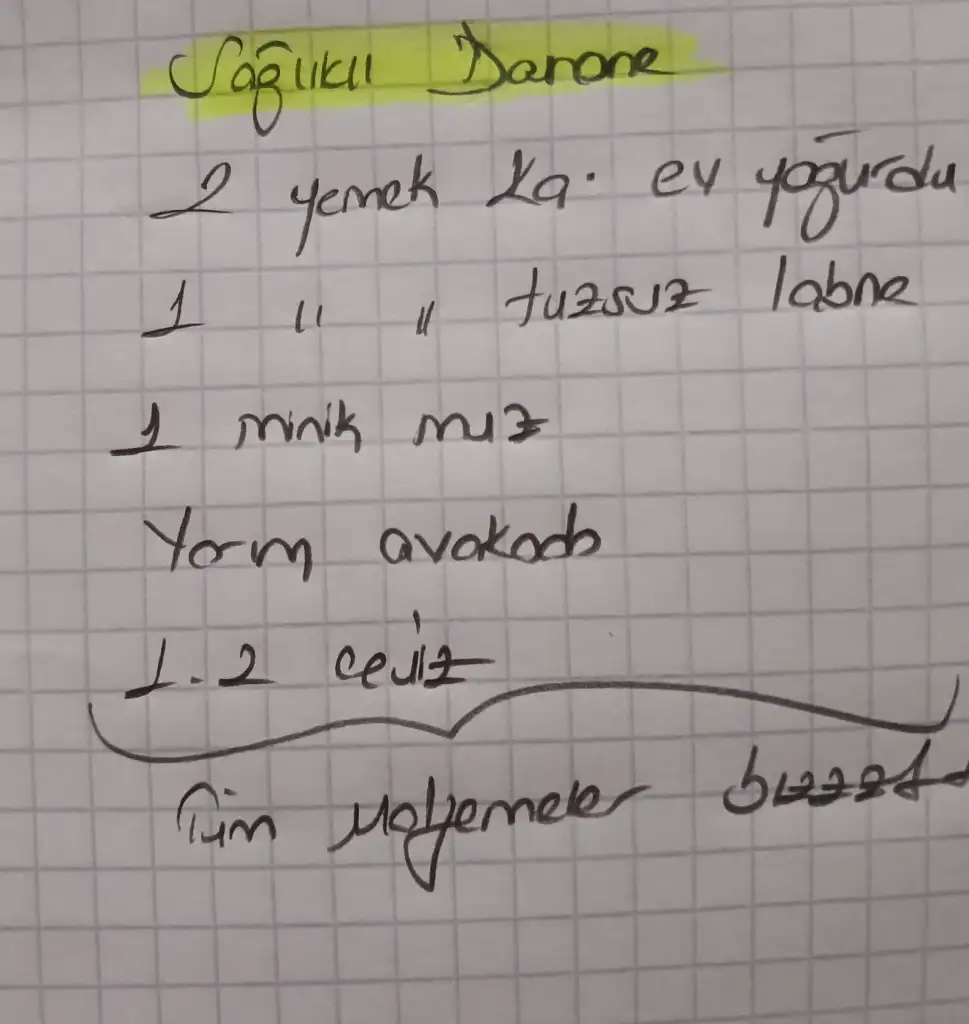 Sağlıklı Danone
2 yemek ka. ev yoğurdu
1 " " tuzsuz labne
1 minik muz
Yarım avokado
1.2 ceviz
Tüm malzemeler bızzzt